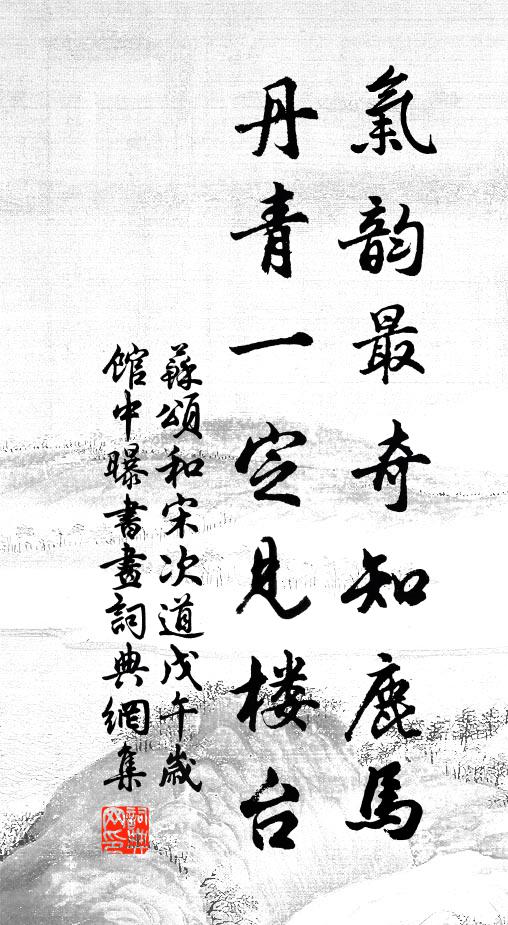 氣韵最奇知鹿馬
丹青一定見楼台
蘇頌和宋次道戊午歲
館中曝書畫詞典網集